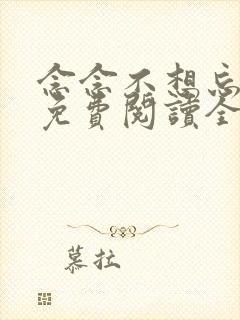 念念不想忘
免費閱讀全
慕拉